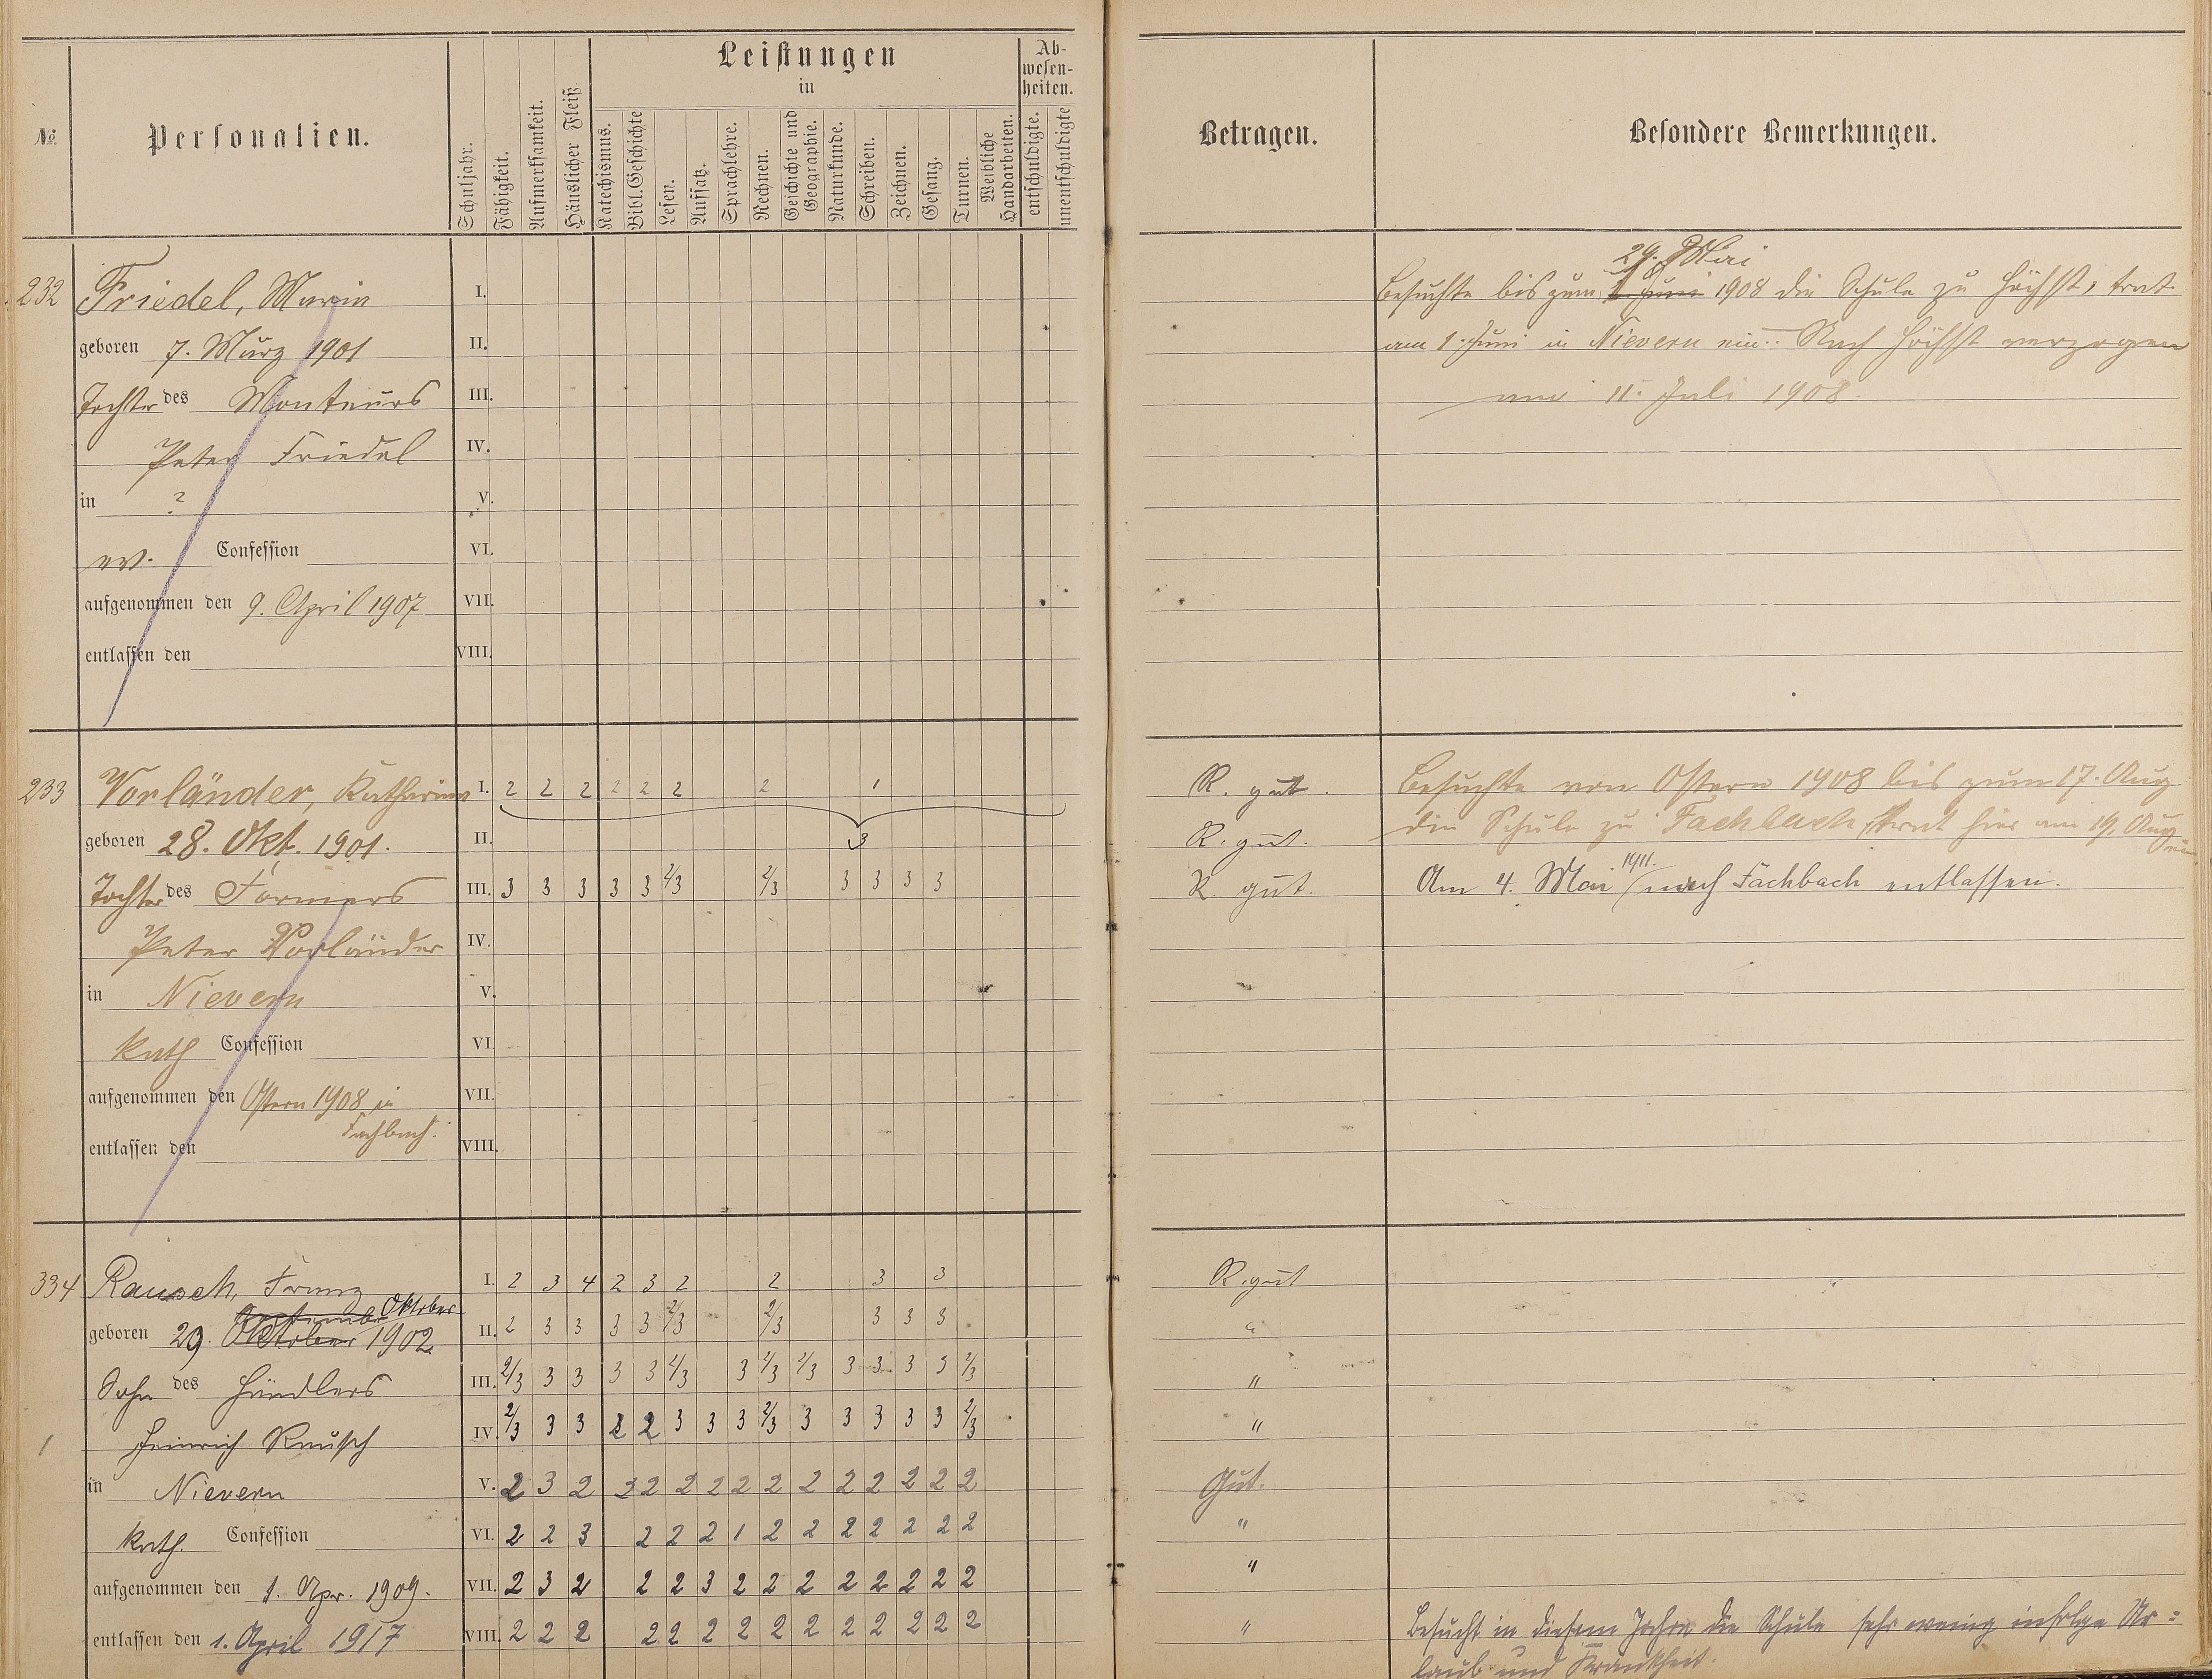 №.
Personalien.
Schuljahr.
Fähigkeit.
Aufmerksamkeit.
Häuslicher Fleiß
Leistungen
in
Katechismus.
Bibl. Geschichte
Lesen.
Aufsatz.
Sprachlehre.
Rechnen.
Geschichte und Geographie.
Naturkunde.
Schreiben.
Zeichnen.
Gesang.
Turnen.
Weibliche Handarbeiten.
Ab-
wesen-
heiten.
entschuldigte.
unentschuldigte
Betragen.
Besondere Bemerkungen.
232 Friedel, Maria I.
geboren 7. März 1901 II.
Tochter des Monteurs III.
Peter Friedel IV.
in ? V.
ev. Confession VI.
aufgenommen den 9. April 1907 VII.
entlassen den VIII.
29. Mai
Besuchte bis zum 1. Juni 1908 die Schule zu Höchst, trat
am 1. Juni in Nievern ein. Nach Höchst verzogen
am 11. Juli 1908.
233 Vorländer, Katharina I. 2 2 2 2 2 2 2 1
geboren 28. Okt. 1901. II. 3
Tochter des Formers III. 3 3 3 3 3 2/3 2/3 3 3 3 3
Peter Vorländer IV.
in Nievern V.
kath Confession VI.
aufgenommen den Ostern 1908 in VII.
Fachbach.
entlassen den VIII.
R. gut.
R. gut.
R. gut.
Besuchte von Ostern 1908 bis zum 17. Aug
die Schule zu Fachbach, trat hier am 19. Aug
ein.
1911.
Am 4. Mai nach Fachbach entlassen.
334 Rausch, Franz I. 2 3 4 2 3 2 2 3 3
September Oktober
geboren 29. Oktober 1902 II. 2 3 3 3 3 2/3 2/3 3 3 3
Sohn des Händlers III. 2/3 3 3 3 3 2/3 3 2/3 2/3 3 3 3 3 2/3
1 Heinrich Rausch IV. 2/3 3 3 2 2 3 3 3 2/3 3 3 3 3 3 2/3
in Nievern V. 2 3 2 3 2 2 2 2 2 2 2 2 2 2 2
kath. Confession VI. 2 2 3 2 2 2 1 2 2 2 2 2 2 2
aufgenommen den 1. Apr. 1909. VII. 2 3 2 2 2 3 2 2 2 2 2 2 2 2
entlassen den 1. April 1917 VIII. 2 2 2 2 2 2 2 2 2 2 2 2 2 2
R. gut
"
"
"
Gut.
"
"
"
Besucht in diesem Jahre die Schule sehr wenig infolge Ur=
laub und Krankheit.